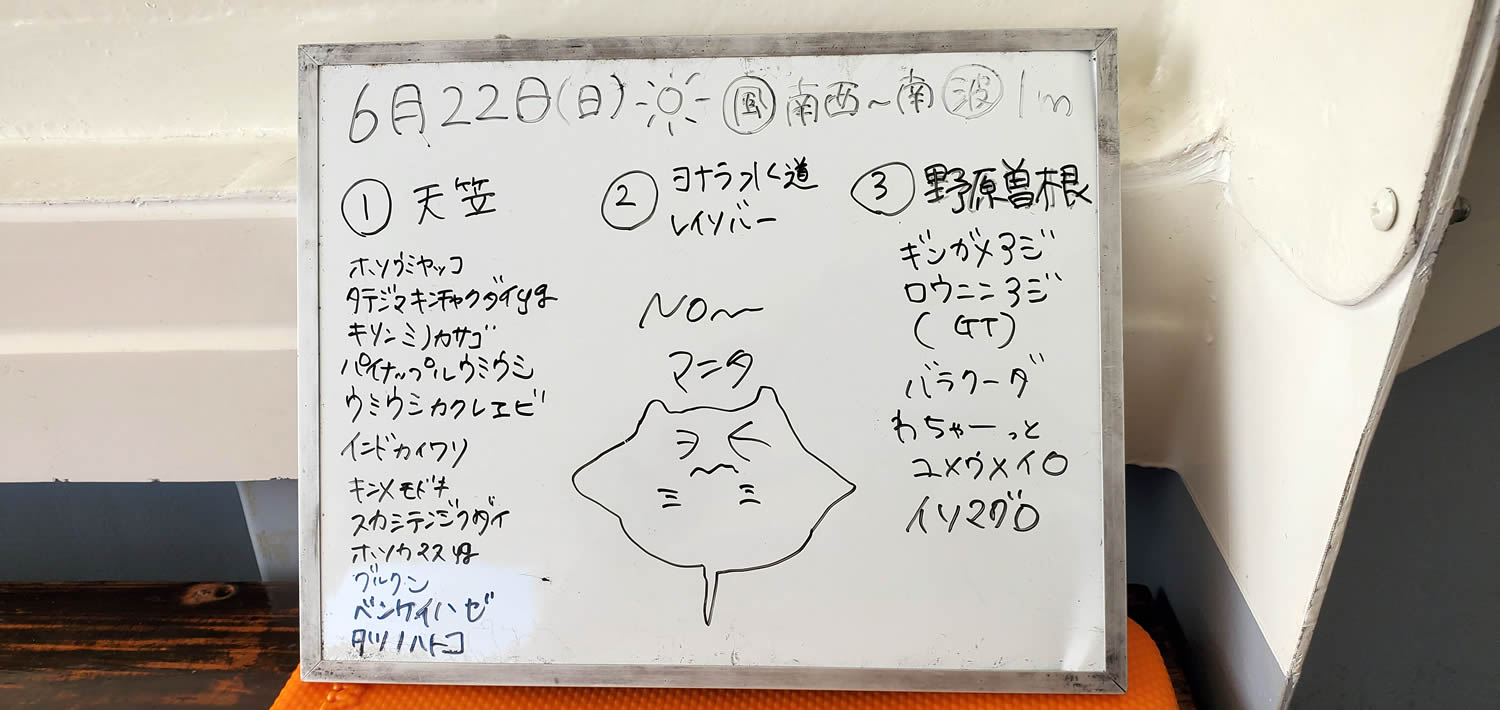 6月22日(日) 風 南西~南 波 1m
① 天笠
ホソウミヤッコ
タテジマキンチャクダイyg
キリンミノカサゴ
パイナップルウミウシ
ウミウシカクレエビ
インドカイワリ
キンメモドキ
スカシテンジクダイ
ホソカマスyg
グルクン
ベンケイハゼ
タツノハトコ
② ヨナラ水道
レインバー
NO〜
マニタ
③ 野原曽根
ギンガメアジ
ロウニンアジ
(GT)
バラクーダ
わちゃーっと
ユメウメイロ
イソマグロ